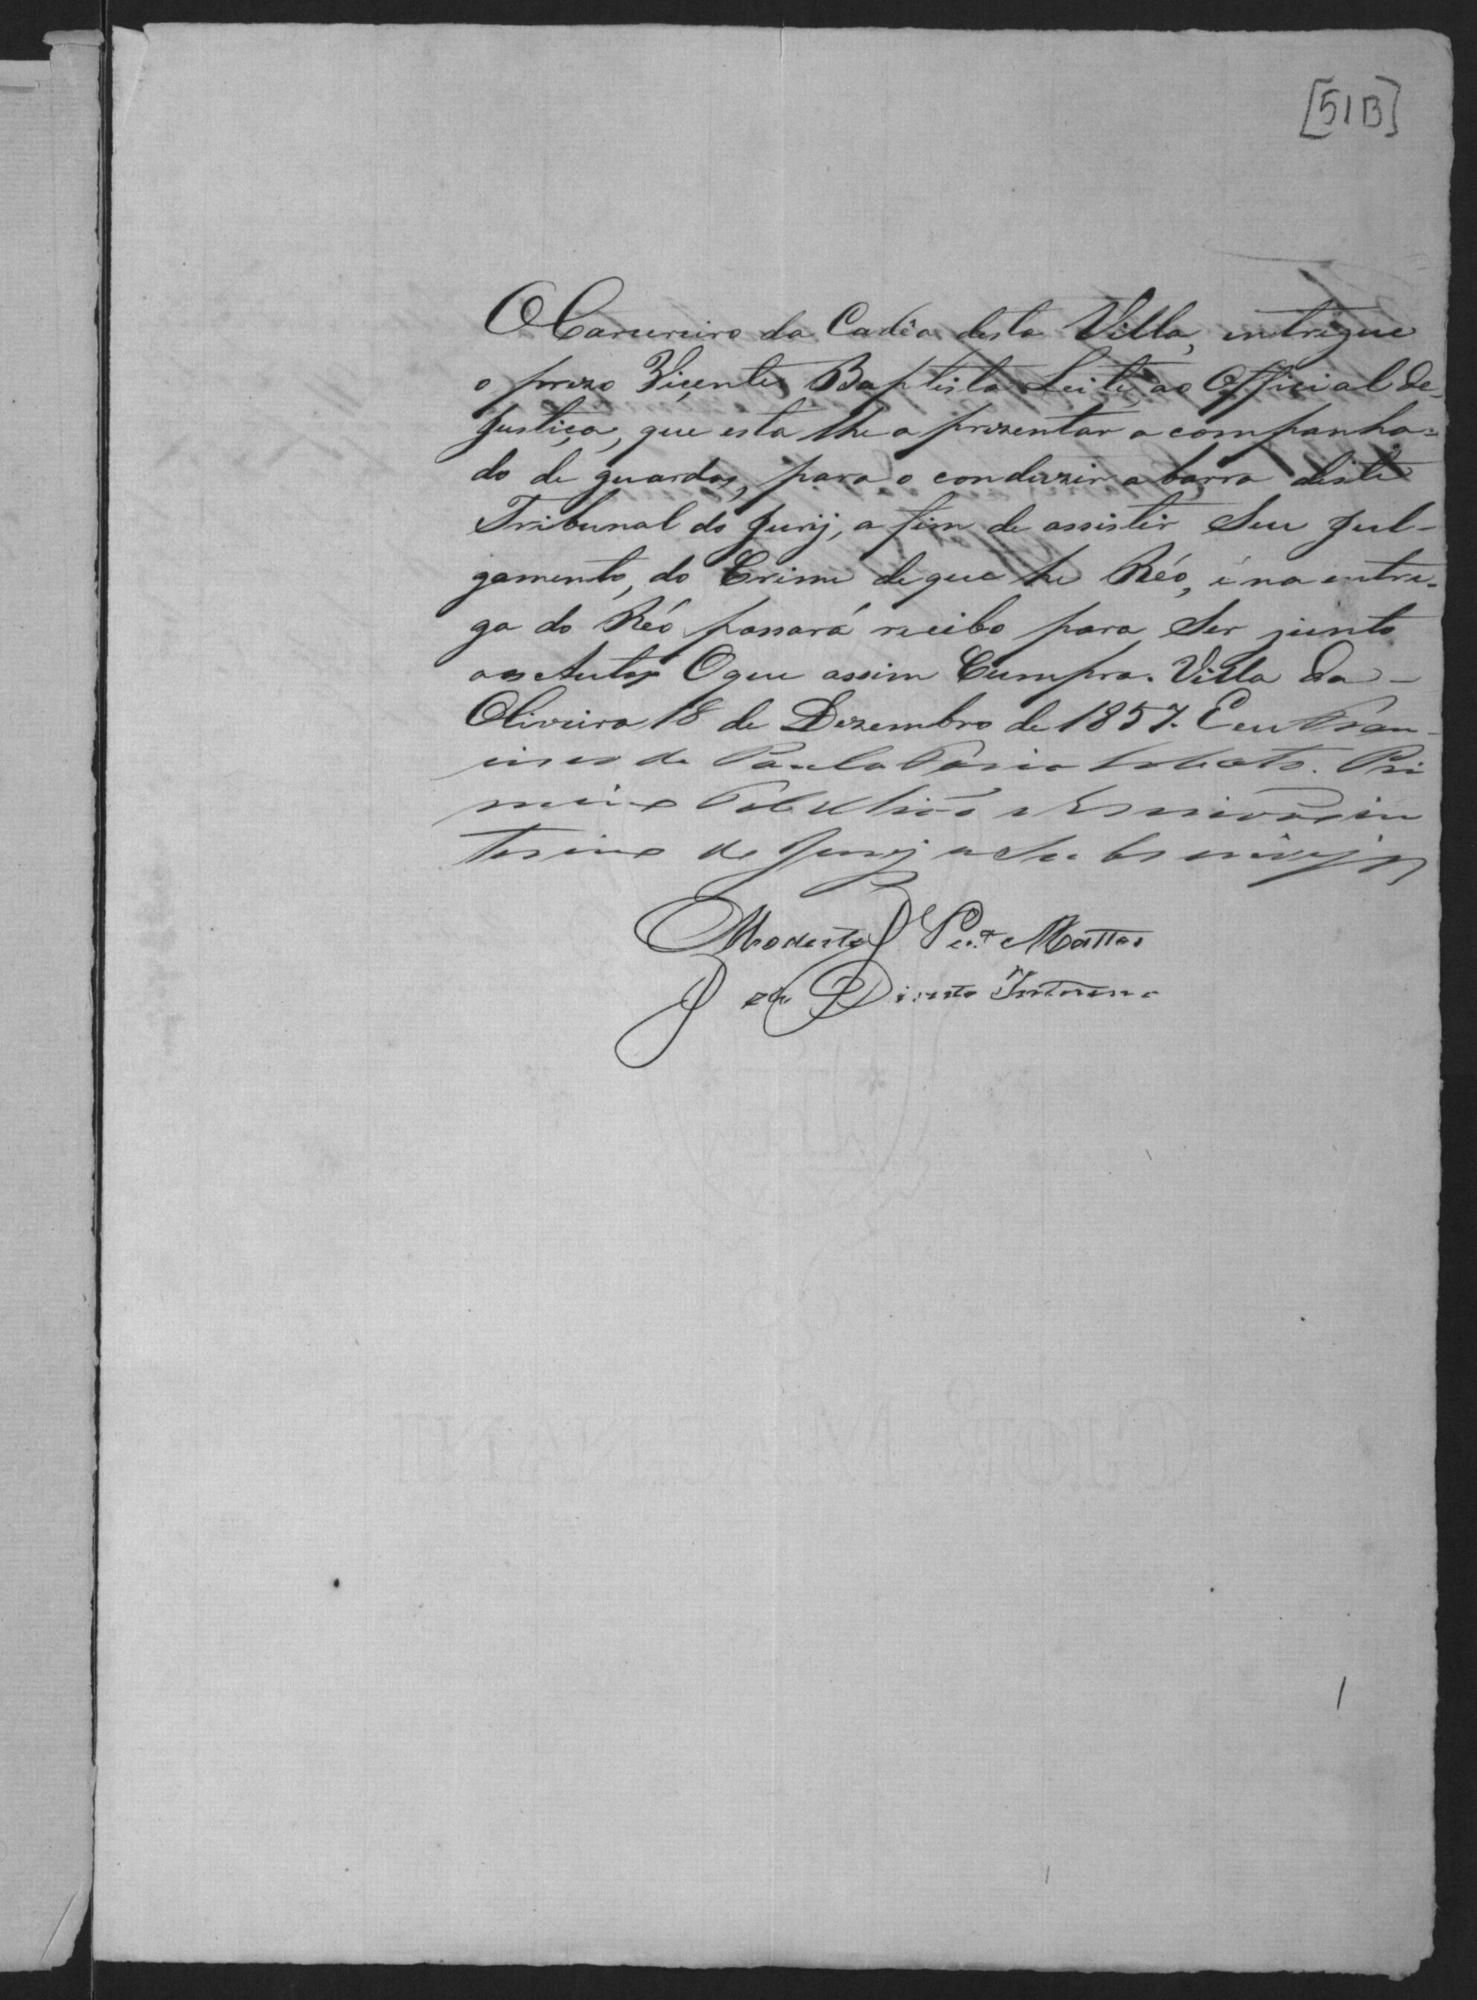 [51B]
O Carcereiro da Cadêa desta Villa, entregue
o prezo Viçente Baptista Leite, ao Official de
Justiça, que esta lhe aprezentar acompanha=
do de guardas, para o conduzir a barra deste
Tribunal do Jurÿ, a fim de assistir Seu jul-
gamento, do Crime de que he Réo, e na entre-
ga do Réo passará recibo para Ser junto
aos Autos O que assim Cumpra. Villa da
Oliveira 18 de Dezembro de 1857. E eu Fran
cisco de Paula Lobato. Pri
meiro Tabelliaõ e Escrivaõ in
terino do Jury o Subscrivÿ
Modesto Mattos
Juiz de Direito Interino